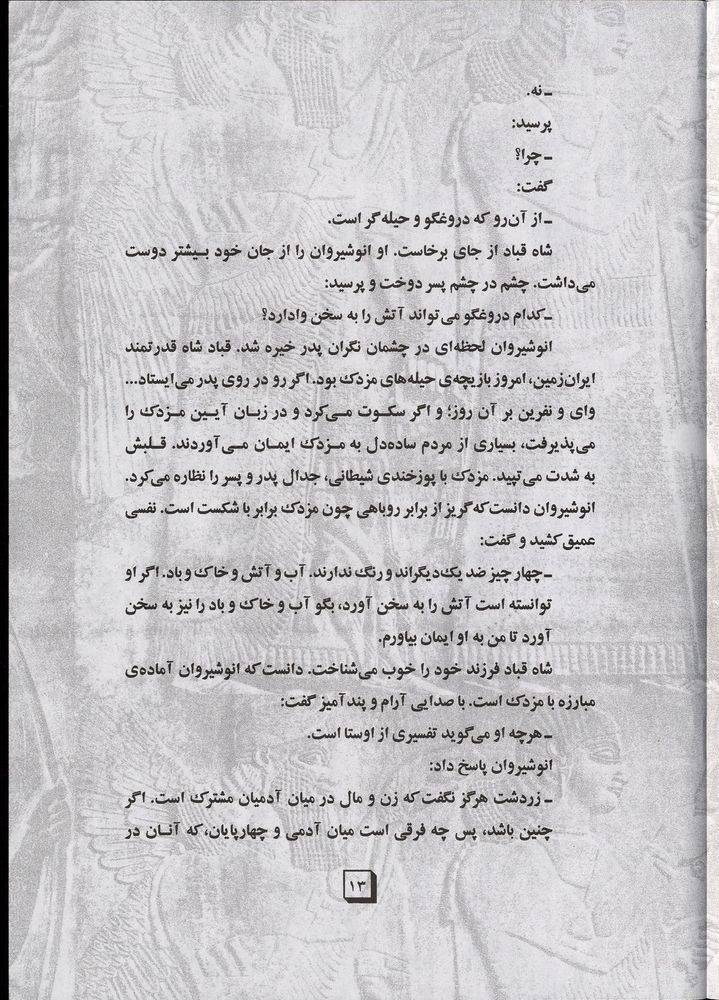 ـ نه.
پرسید:
ـ چرا؟
گفت:
ـ از آن‌رو که دروغگو و حیله‌گر است.
شاه قباد از جای برخاست. او انوشیروان را از جان خود بیشتر دوست
می‌داشت. چشم در چشم پسر دوخت و پرسید:
ـ کدام دروغگو می‌تواند آتش را به سخن وادارد؟
انوشیروان لحظه‌ای در چشمان نگران پدر خیره شد. قباد شاه قدرتمند
ایران‌زمین، امروز بازیچه‌ی حیله‌های مزدک بود. اگر رو در روی پدر می‌ایستاد...
وای و نفرین بر آن روز؛ و اگر سکوت می‌کرد و در زبان آیین مزدک را
می‌پذیرفت، بسیاری از مردم ساده‌دل به مزدک ایمان می‌آوردند. قلبش
به شدت می‌تپید. مزدک با پوزخندی شیطانی، جدال پدر و پسر را نظاره می‌کرد.
انوشیروان دانست که گریز از برابر روباهی چون مزدک برابر با شکست است. نفسی
عمیق کشید و گفت:
ـ چهار چیز ضد یک‌دیگراند و رنگ ندارند. آب و آتش و خاک و باد. اگر او
توانسته است آتش را به سخن آورد، بگو آب و خاک و باد را نیز به سخن
آورد تا من به او ایمان بیاورم.
شاه قباد فرزند خود را خوب می‌شناخت. دانست که انوشیروان آماده‌ی
مبارزه با مزدک است. با صدایی آرام و پندآمیز گفت:
ـ هرچه او می‌گوید تفسیری از اوستا است.
انوشیروان پاسخ داد:
ـ زردشت هرگز نگفت که زن و مال در میان آدمیان مشترک است. اگر
چنین باشد، پس چه فرقی است میان آدمی و چهارپایان، که آنان در
۱۳